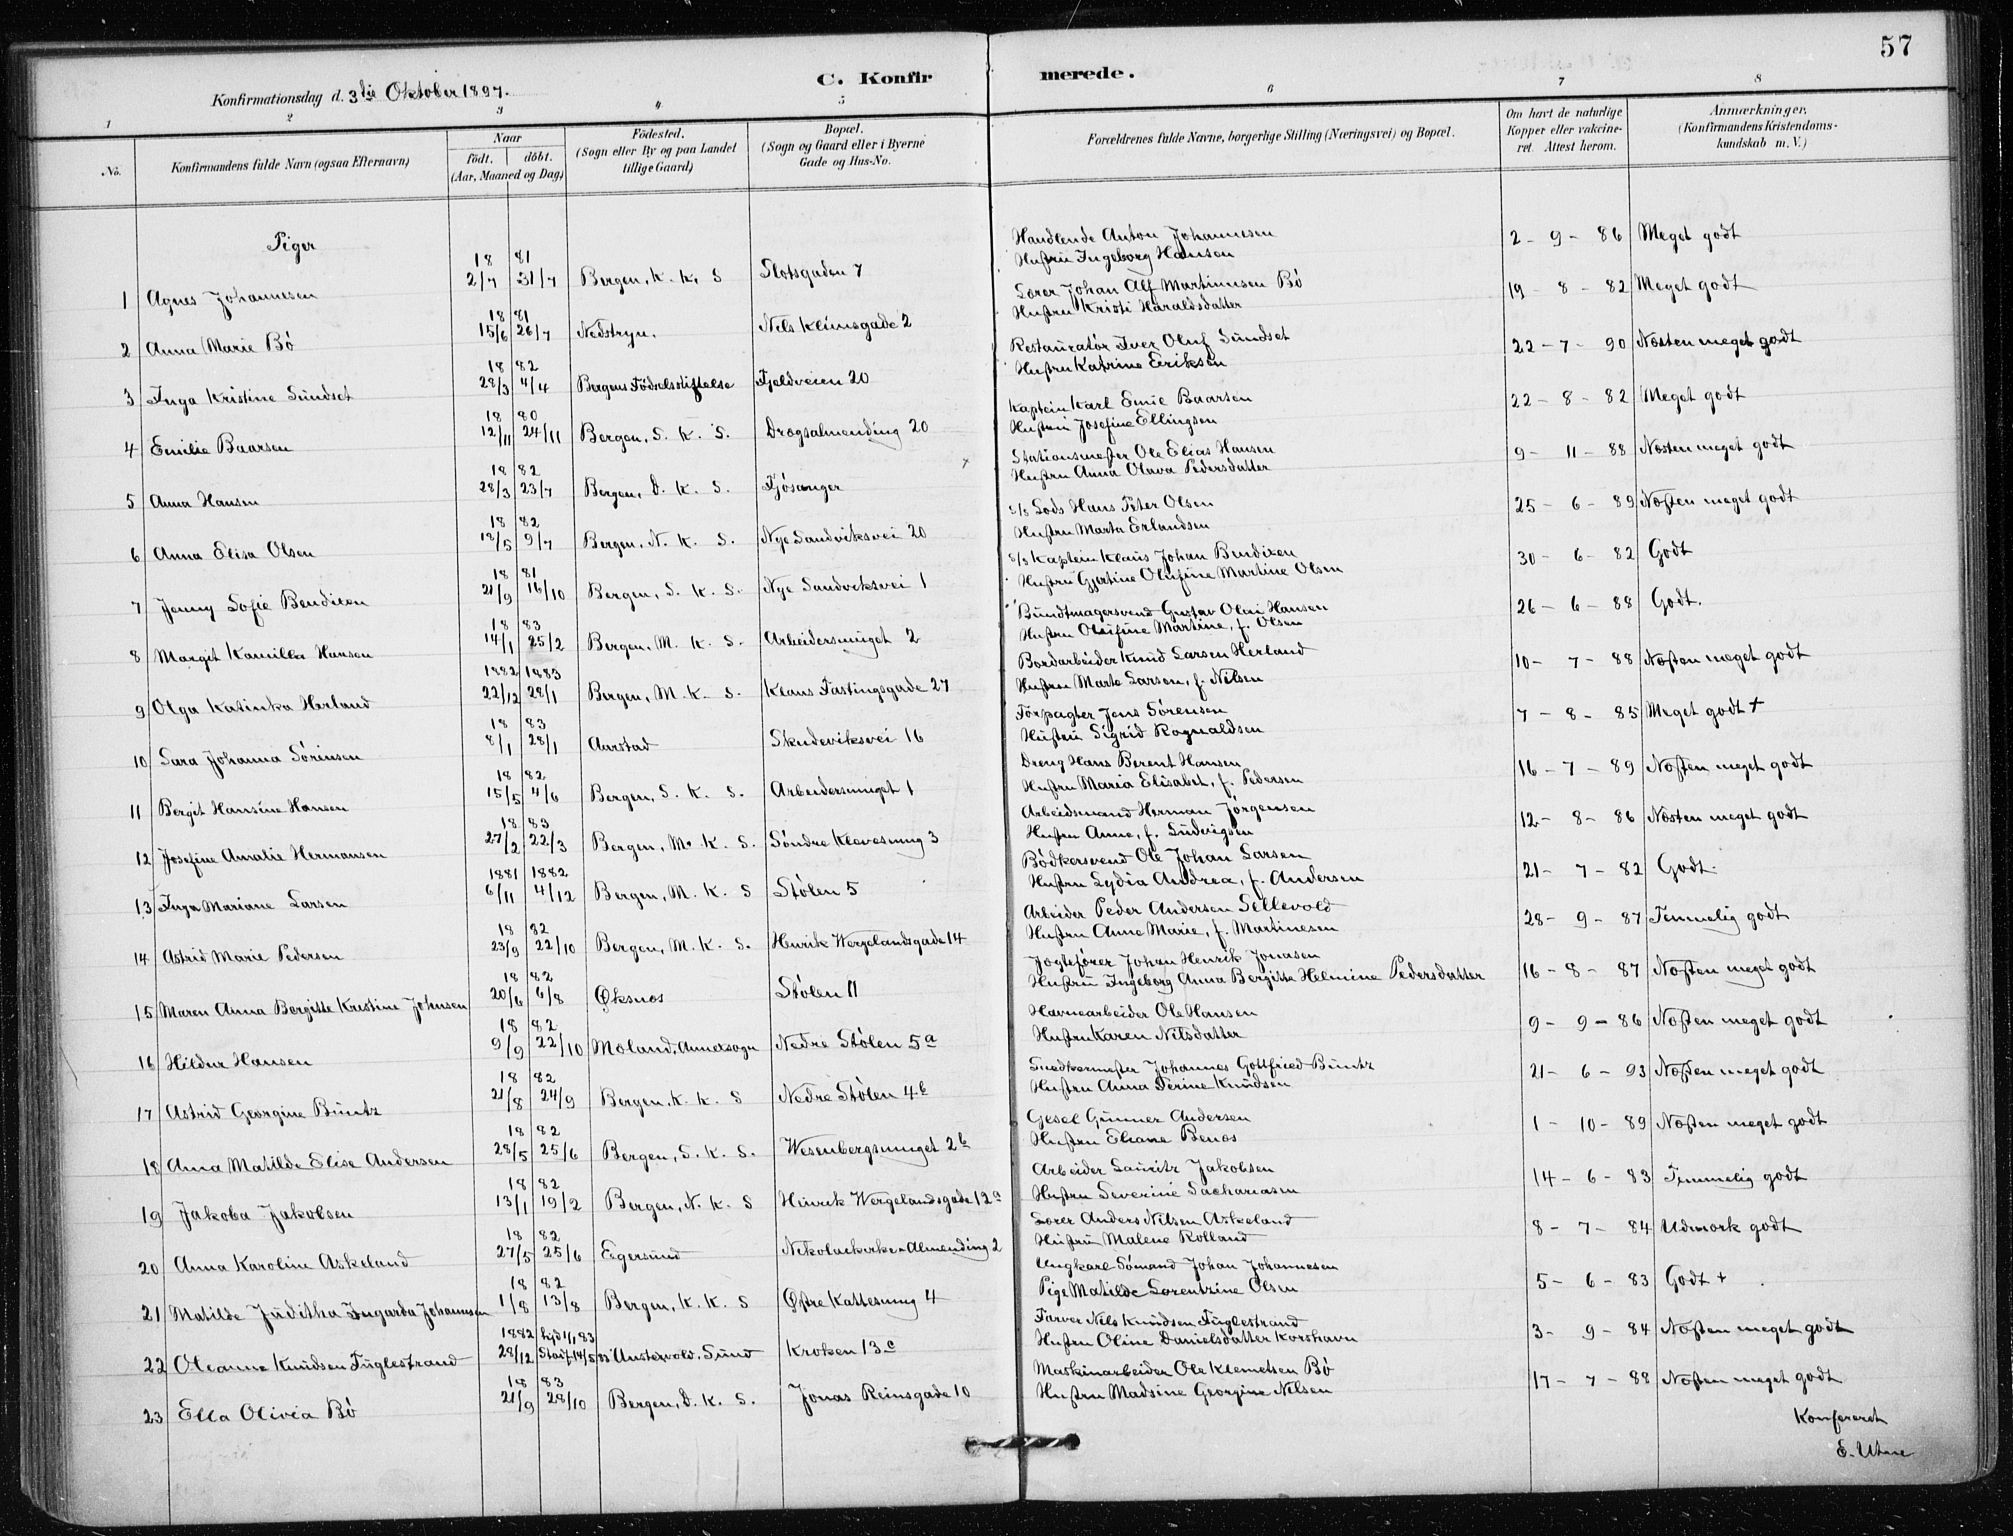 57
C. Konfirmerede.
Konfirmationsdag d. 3die Oktober 1897.
1 2 3 4 5 6 7 8
No. Konfirmandens fulde Navn (ogsaa Efternavn) Naar födt. döbt. (Aar, Maaned og Dag) Födested. (Sogn eller By og paa Landet tillige Gaard) Bopæl. (Sogn og Gaard eller i Byerne Gade og Hus-No. Forældrenes fulde Navne, borgerlige Stilling (Næringsvei) og Bopæl. Om havt de naturlige Kopper eller vakcineret. Attest herom. Anmærkninger. (Konfirmandens Kristendomskundskab m. V.)
Piger
1 Agnes Johannesen 18 81 2/7 31/7 Bergen, K. K. S Slotsgaden 7 Handlende Anton Johannesen Hustru Ingeborg Hansen 2 - 9 - 86 Meget godt
2 Anna Marie Bö 18 81 15/6 26/7 Nedstryn. Nils Klimsgade 2 Lærer Johan Alf Martinusen Bö Hustru Kristi Haraldsdatter 19 - 8 - 82 Meget godt
3 Inga Kristine Sundset 18 82 28/3 4/4 Bergens Födselsstiftelse Fjeldveien 20 Restauratör Iver Oluf Sundset Hustru Katrine Eriksen 22 - 7 - 90 Næsten meget godt
4 Emilie Baarsen 18 80 12/11 24/11 Bergen, S. K. S. Drægsalmending 20 Kaptein Karl Emil Baarsen Hustru Josefine Ellingsen 22 - 8 - 82 Meget godt
5 Anna Hansen 18 82 28/3 23/7 Bergen, D. K. S. Fjösanger Stationsmester Ole Elias Hansen Hustru Anna Olava Pedersdatter 9 - 11 - 88 Næsten meget godt
6 Anna Elisa Olsen 18 82 18/5 9/7 Bergen, N. K. S. Nye Sandviksvei 20 Lods Hans Peter Olsen Hustru Marta Erlandsen 25 - 6 - 89 Næsten meget godt
7 Jenny Sofie Bendixen 18 81 21/9 16/10 Bergen, S. K. S. Nye Sandviksvei 1 Kaptein Klaus Johan Bendixen Hustru Gjertine Olufine Martine Olsen 30 - 6 - 82 Godt
8 Margit Kamilla Hansen 18 83 14/1 25/2 Bergen, M. K. S. Arbeidersmuget 2 Bundtmagersvend Gustav Olai Hansen Hustru Olufine Martine, f. Olsen 26 - 6 - 88 Godt.
9 Olga Katinka Herland 1882 1883 22/12 28/1 Bergen, M. K. S. Klaus Fastingsgade 27 Bordarbeider Knud Larsen Herland Hustru Marte Larsen, f. Nilsen 10 - 7 - 88 Næsten meget godt
10 Sara Johanna Sörensen 18 83 8/1 28/1 Aarstad Skudeviksvei 16 Forpagter Jens Sörensen Hustru Sigrid Ragnaldsen 7 - 8 - 85 Meget godt +
11 Bergit Hansine Hansen 18 82 15/5 4/6 Bergen, S. K. S. Arbeidersmuget 1 Dreng Hans Berent Hansen Hustru Maria Elisabet, f. Pedersen 16 - 7 - 89 Næsten meget godt
12 Josefine Amalie Hermansen 18 83 27/2 22/3 Bergen, M. K. S. Söndre Klevesmug 3 Arbeidsmand Herman Jörgensen Hustru Anne, f. Ludvigsen 12 - 8 - 86 Næsten meget godt
13 Inga Mariane Larsen 1881 1882 6/11 4/12 Bergen, M. K. S Stölen 5 Bödkersvend Ole Johan Larsen Hustru Lydia Andrea, f. Andersen 21 - 7 - 82 Godt.
14 Astrid Marie Pedersen 18 82 23/9 22/10 Bergen, M. K. S. Henrik Wergelandsgade 14 Arbeider Peder Andersen Sellevold Hustru Anne Marie, f. Martinesen 28 - 9 - 87 Temmelig godt
15 Maren Anna Bergitte Kristine Johnsen 18 82 20/6 6/8 Øksnes Stölen 11 Jægtefører Johan Henrik Jonasen Hustru Ingeborg Anna Bergitte Helmine Pedersdatter 16 - 8 - 87 Næsten meget godt
16 Hildur Hansen 18 82 9/9 22/10 Moland, Annexsogn Nedre Stölen 5a Havnearbeider Ole Hansen Hustru Karen Nilsdatter 9 - 9 - 86 Næsten meget godt
17 Astrid Georgine Buntz 18 82 21/8 24/9 Bergen, K. K. S Nedre Stölen 4b Snedkermester Johannes Gottfried Buntz Hustru Anna Perine Knudsen 21 - 6 - 93 Næsten meget godt
18 Anna Matilde Elise Andersen 18 82 28/5 25/6 Bergen, S. K. S. Wesenbergsmuget 2b Gesel Gunner Andersen Hustru Eliane Benos 1 - 10 - 89 Næsten meget godt
19 Jakoba Jakobsen 18 82 13/1 19/2 Bergen, N. K. S Henrik Wergelandsgade 12a Arbeider Lauritz Jakobsen Hustru Severine Sachariasen 14 - 6 - 83 Temmelig godt
20 Anna Karoline Askeland 18 82 27/5 25/6 Egersund Nikolaikirke-Almending 2 Lærer Anders Nilsen Askeland Hustru Malene Rolland 8 - 7 - 84 Udmerk godt
21 Matilde Juditha Ingarda Johannesen 18 82 1/8 13/8 Bergen, K. K. S Østre Kattesmug 4 Ungkarl Sömand Johan Johannesen Pige Matilde Lorentine Olsen 5 - 6 - 83 Godt +
22 Oleanna Knudsen Fuglestrand 1882 28/12 Austevold, Sund Kroken 13c Farver Nils Knudsen Fuglestrand Hustru Oline Danielsdatter Korshavn 3 - 9 - 84 Næsten meget godt
23 Ella Olivia Bö 18 83 21/9 28/10 Bergen, D. K. S. Jonas Reinsgade 10 Maskinarbeider Ole Klemetsen Bö Hustru Madsine Georgine Nilsen 17 - 7 - 88 Næsten meget godt
Konfereret
E. Utne